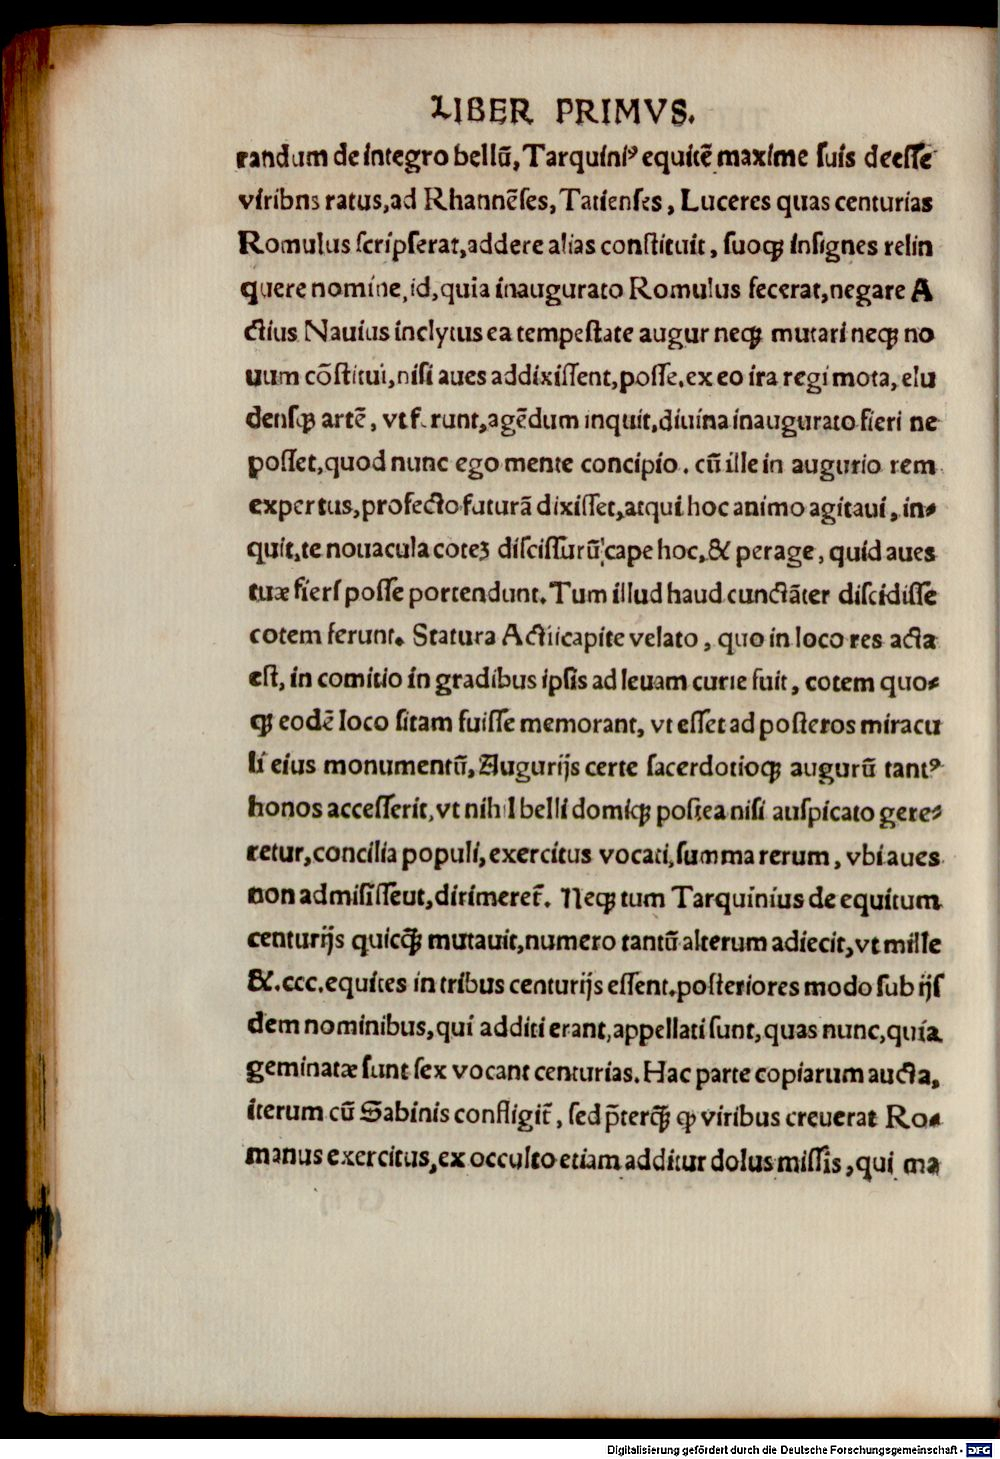 LIBER PRIMVS.
randum de integro bellū, Tarquiniꝰ equitē maxime suis deesse
viribns ratus, ad Rhannēses, Tatienses, Luceres quas centurias
Romulus scripserat, addere alias constituit, suoqꝫ insignes relin
quere nomine, id, quia inaugurato Romulus fecerat, negare A
ctius Nauius inclytus ea tempestate augur neqꝫ mutari neqꝫ no
uum cōstitui, nisi aues addixissent, posse. ex eo ira regi mota, elu
densqꝫ artē, vt f runt, agēdum inquit, diuina inaugurato fieri ne
posset, quod nunc ego mente concipio. cū ille in augurio rem
expertus, profecto futurā dixisset, atqui hoc animo agitaui, in-
quit, te nouacula coteʒ discissurū cape hoc, & perage, quid aues
tuæ fieri posse portendunt. Tum illud haud cunctāter discidisse
cotem ferunt. Statura Actii capite velato, quo in loco res acta
est, in comitio in gradibus ipsis ad leuam curie fuit, cotem quo-
qꝫ eodē loco sitam fuisse memorant, vt esset ad posteros miracu
li eius monumentū, Augurijs certe sacerdotioqꝫ augurū tantꝰ
honos accesserit, vt nihil belli domiqꝫ postea nisi auspicato gere-
retur, concilia populi, exercitus vocati, summa rerum, vbi aues
non admisisseut, dirimeret̃. Neqꝫ tum Tarquinius de equitum
centurijs quicq̃ mutauit, numero tantū alterum adiecit, vt mille
&. ccc. equites in tribus centurijs essent. posteriores modo sub ijs
dem nominibus, qui additi erant, appellati sunt, quas nunc, quia
geminatæ sunt sex vocant centurias. Hac parte copiarum aucta,
iterum cū Sabinis confligit̃, sed p̄terq̃ ꝙ viribus creuerat Ro-
manus exercitus, ex occulto etiam additur dolus missis, qui ma
Digitalisierung gefördert durch die Deutsche Forschungsgemeinschaft - DFG